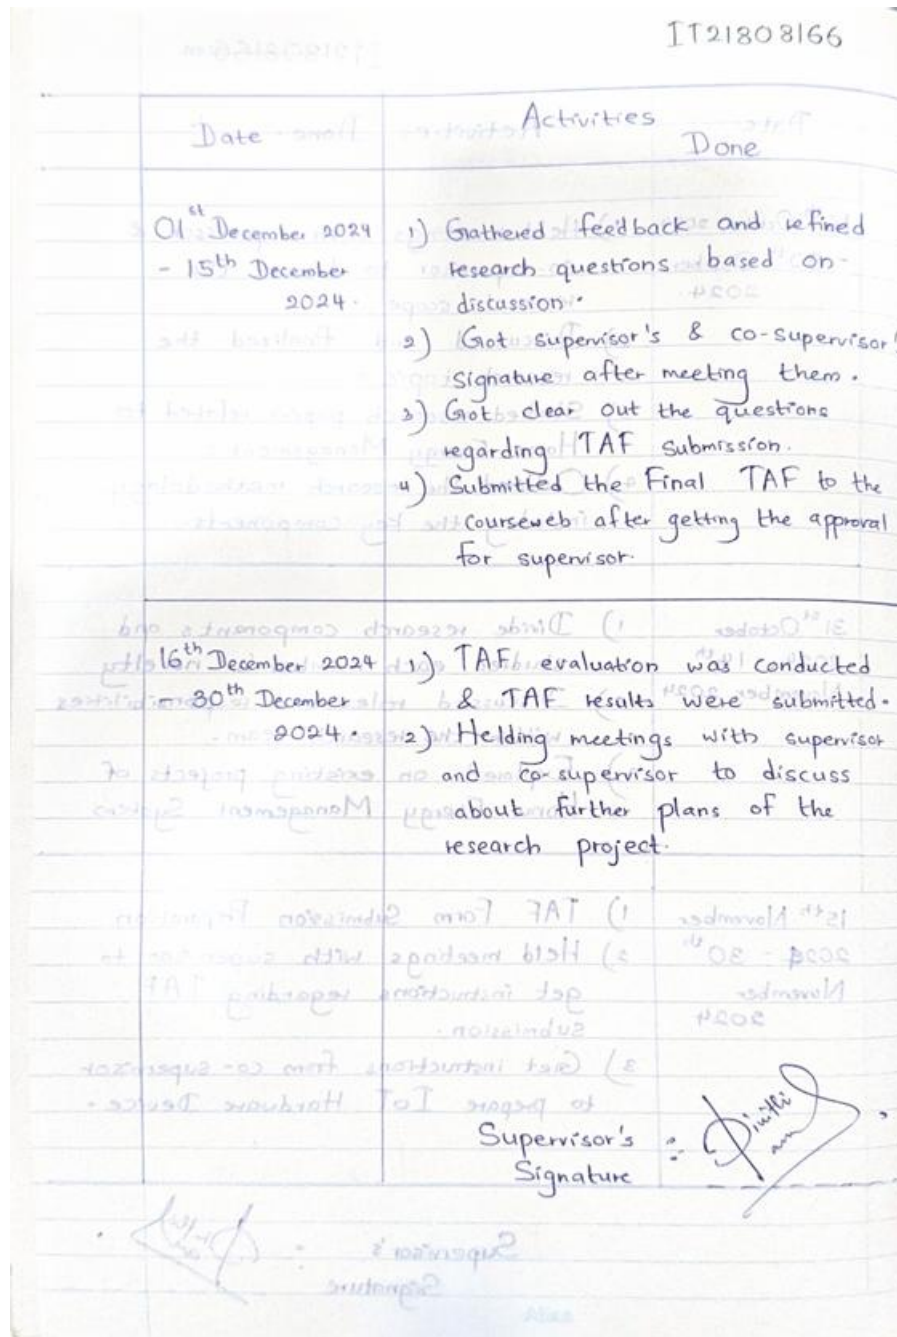 IT21808166
Date
Activities
Done
01st December 2024
- 15th December
2024.
1) Gathered feedback and refined
research questions based on
discussion.
2) Got supervisor's & co-supervisor's
signature after meeting them.
3) Got clear out the questions
regarding TAF submission.
4) Submitted the Final TAF to the
courseweb after getting the approval
for supervisor.
16th December 2024
- 30th December
2024.
1) TAF evaluation was conducted
& TAF results were submitted.
2) Helding meetings with supervisor
and co-supervisor to discuss
about further plans of the
research project.
Supervisor's :
Signature